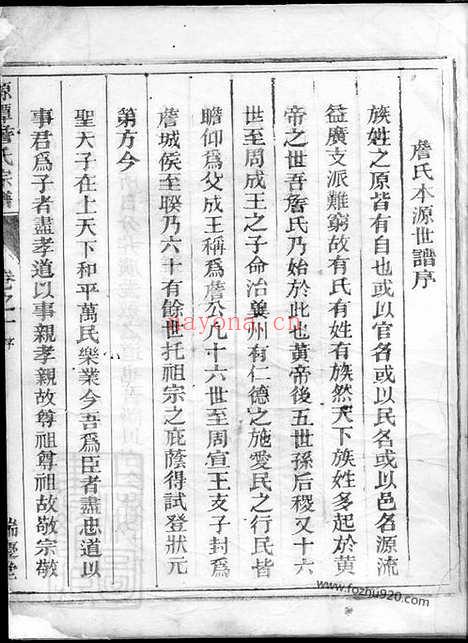 詹氏本源世譜序
族姓之原皆有自也或以官名或以民名或以邑名源流
益廣支派難窮故有氏有姓有族然天下族姓多起於黃
帝之世吾詹氏乃始於此也黃帝後五世孫后稷又十六
世至周成王之子命治襄州有仁德之施愛民之行民皆
瞻仰爲父成王稱爲詹公九十六世至周宣王支子封爲
詹城侯至暌乃六十有餘世托祖宗之庇蔭得試登狀元
第方今
聖天子在上天下和平萬民樂業今吾爲臣者盡忠道以
事君爲子者盡孝道以事親孝親故尊祖尊祖故敬宗敬
源潭詹氏宗譜
卷之一 序
nayona.cn
www.fozhu920.com